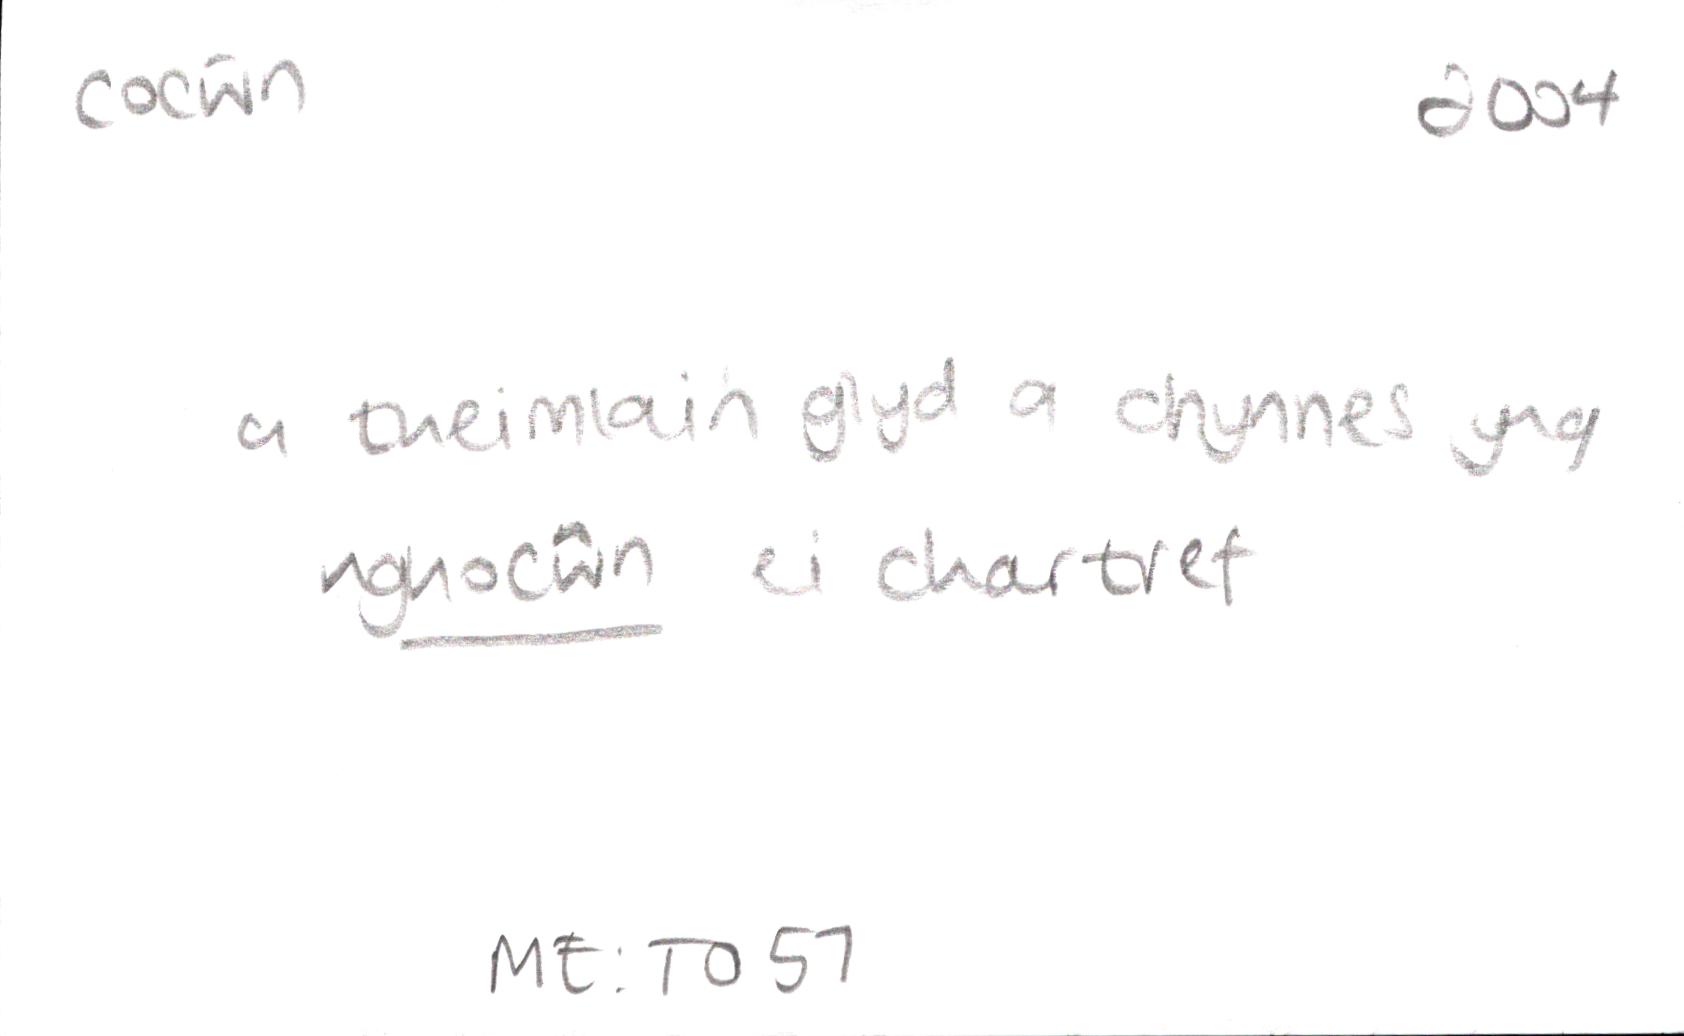 cocŵn 2004
a theimlain glyd a chynnes yng
nghocŵn ei chartref
ME: TO 57